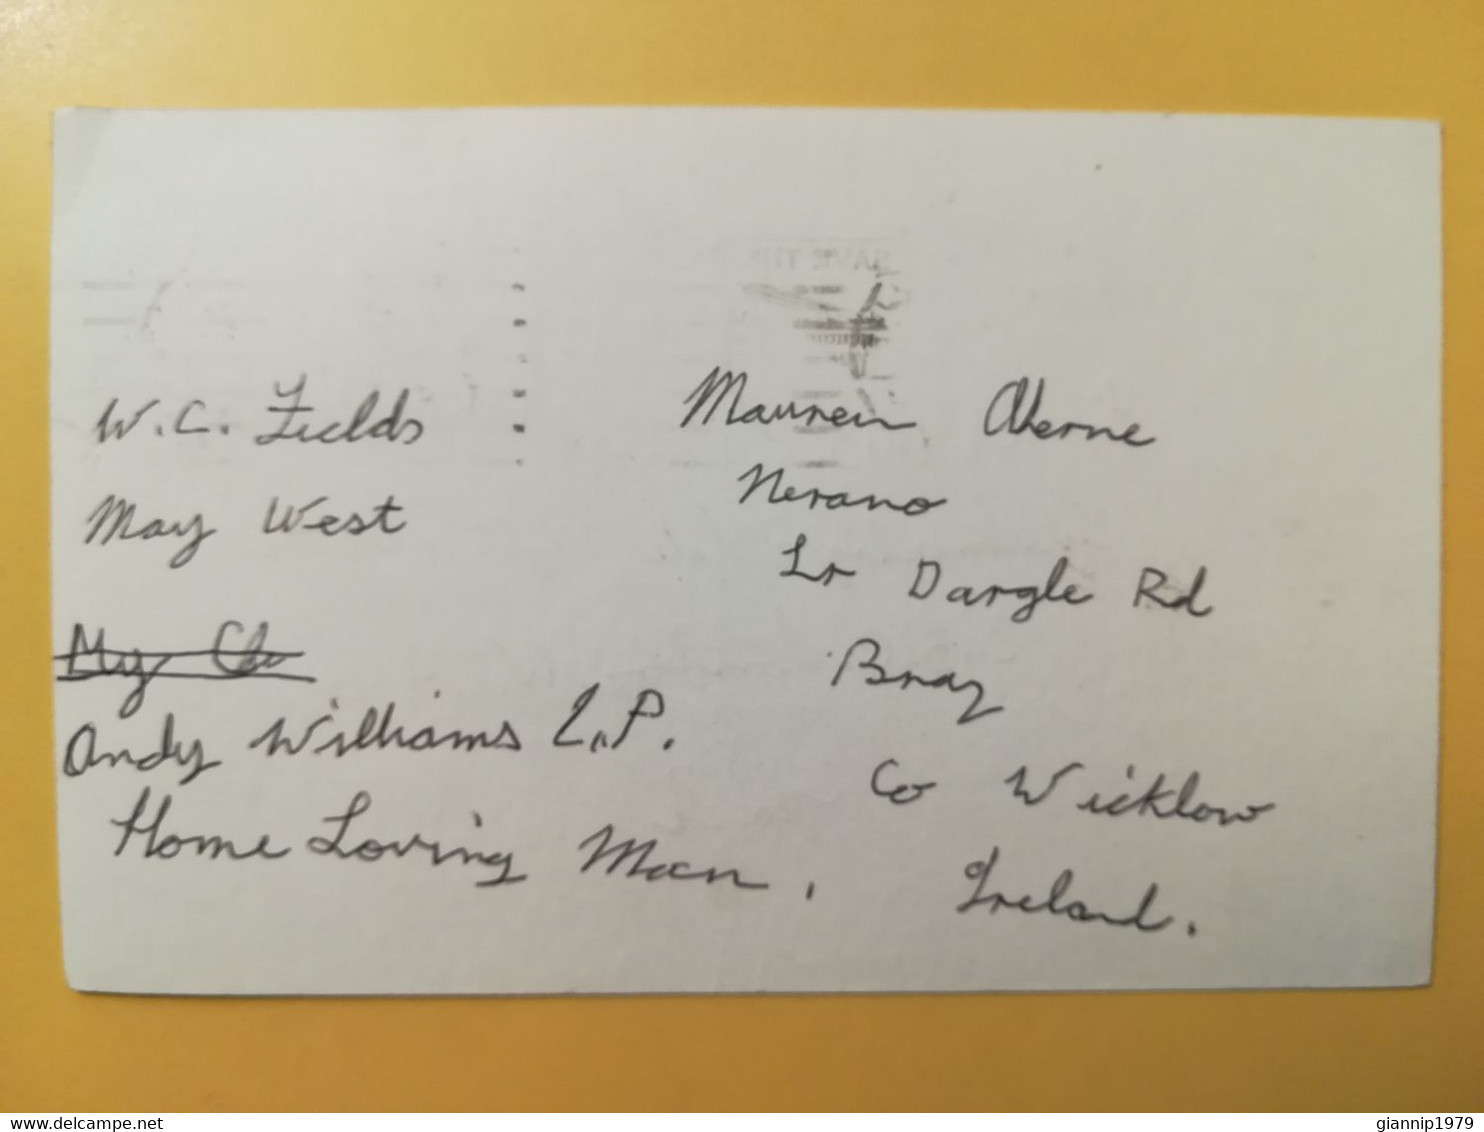 W.C. Fields
May West
My Ch
Andy Williams L.P.
Home Loving Man.
Maureen Aherne
Nerano
Lr Dargle Rd
Bray
Co Wicklow
Ireland.
SAVE
www.delcampe.net
giannip1979